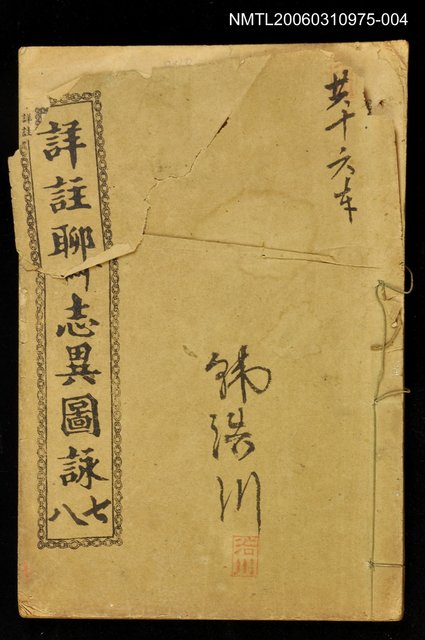 NMTL20060310975-004
共十六本
浩川
浩川
詳註聊齋志異圖詠
七八
詳註